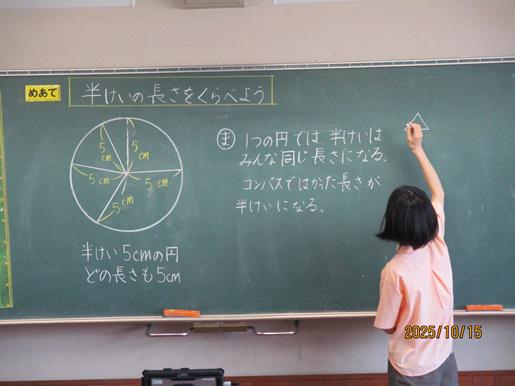 めあて
半けいの長さをくらべよう
5cm
5cm
5cm
5cm
5cm
半けい5cmの円
どの長さも5cm
ま 1つの円では、半けいは
みんな同じ長さになる。
コンパスではかった長さが
半けいになる。
2025/10/15